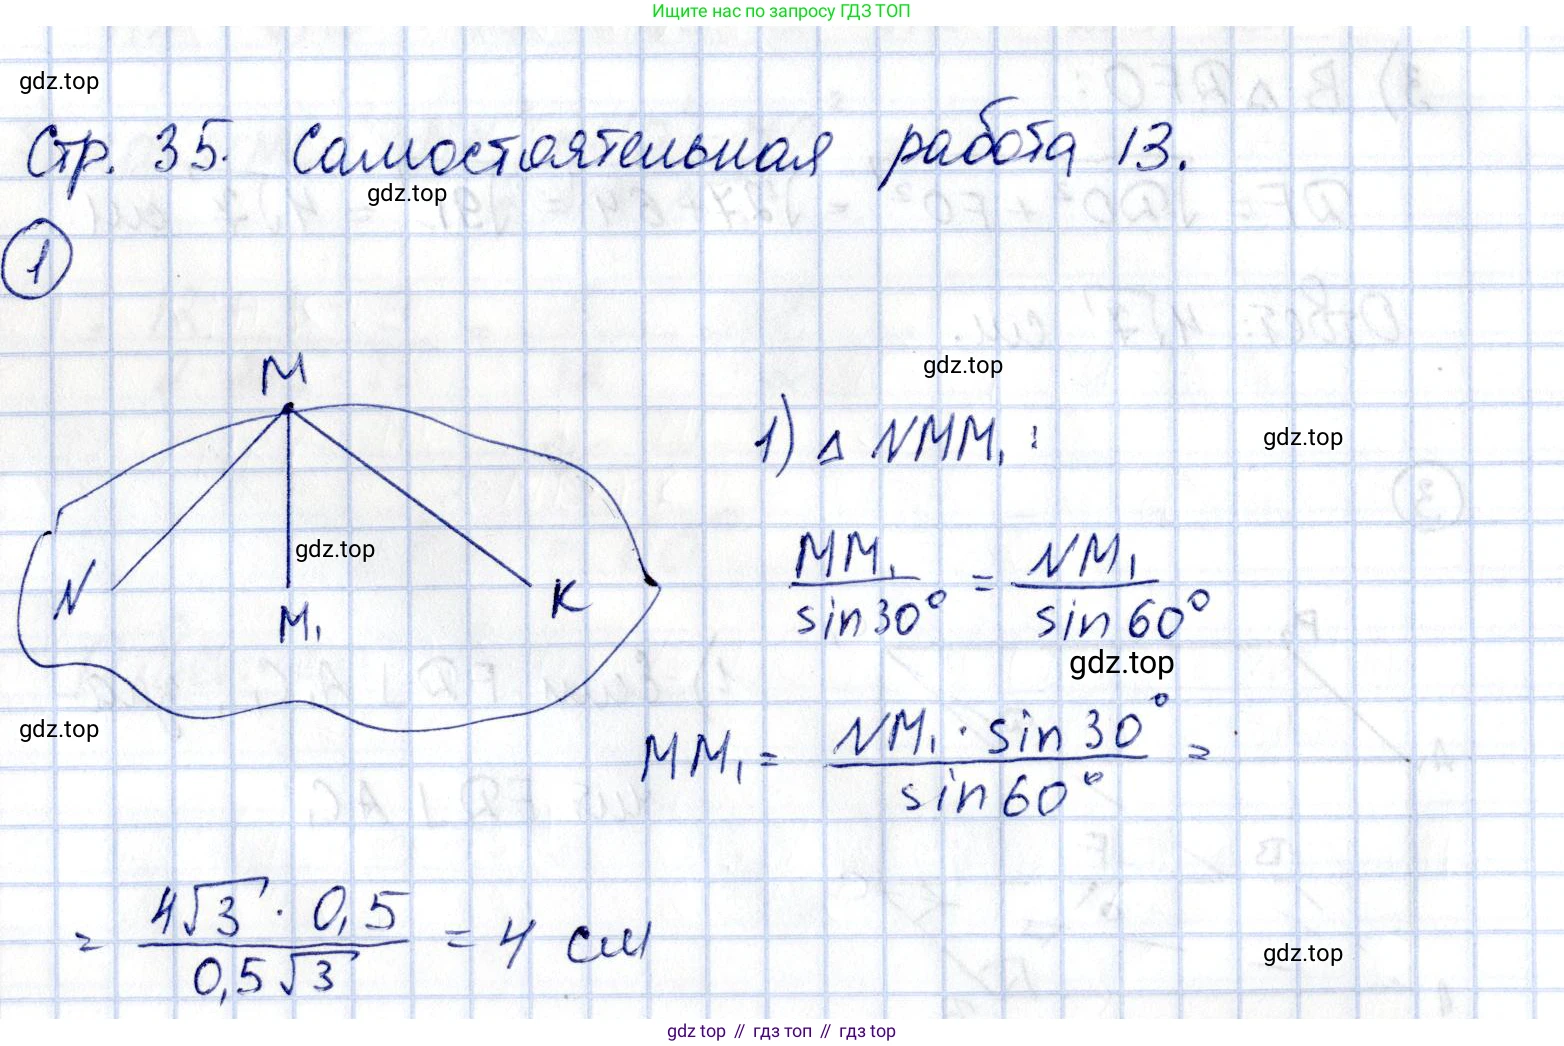 Ищите нас по запросу ГДЗ ТОП
gdz.top
Стр. 35. Самостоятельная работа 13.
gdz.top
1
M
gdz.top
1) Δ NMM₁:
gdz.top
gdz.top
N
M₁
K
MM₁/sin30° = NM₁/sin60°
gdz.top
gdz.top
MM₁ = NM₁·sin30°/sin60° =
= 4√3·0,5/0,5√3 = 4 см
gdz.top
gdz.top // гдз топ // гдз top